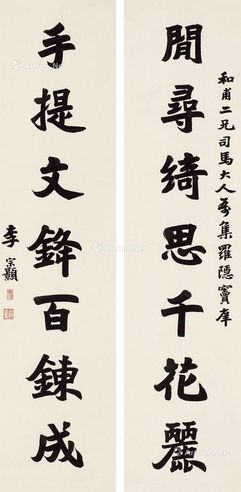 閒尋綺思千花麗
和甫二兄司馬大人屬集羅隱竇庠
手提文鋒百鍊成
李宗顥